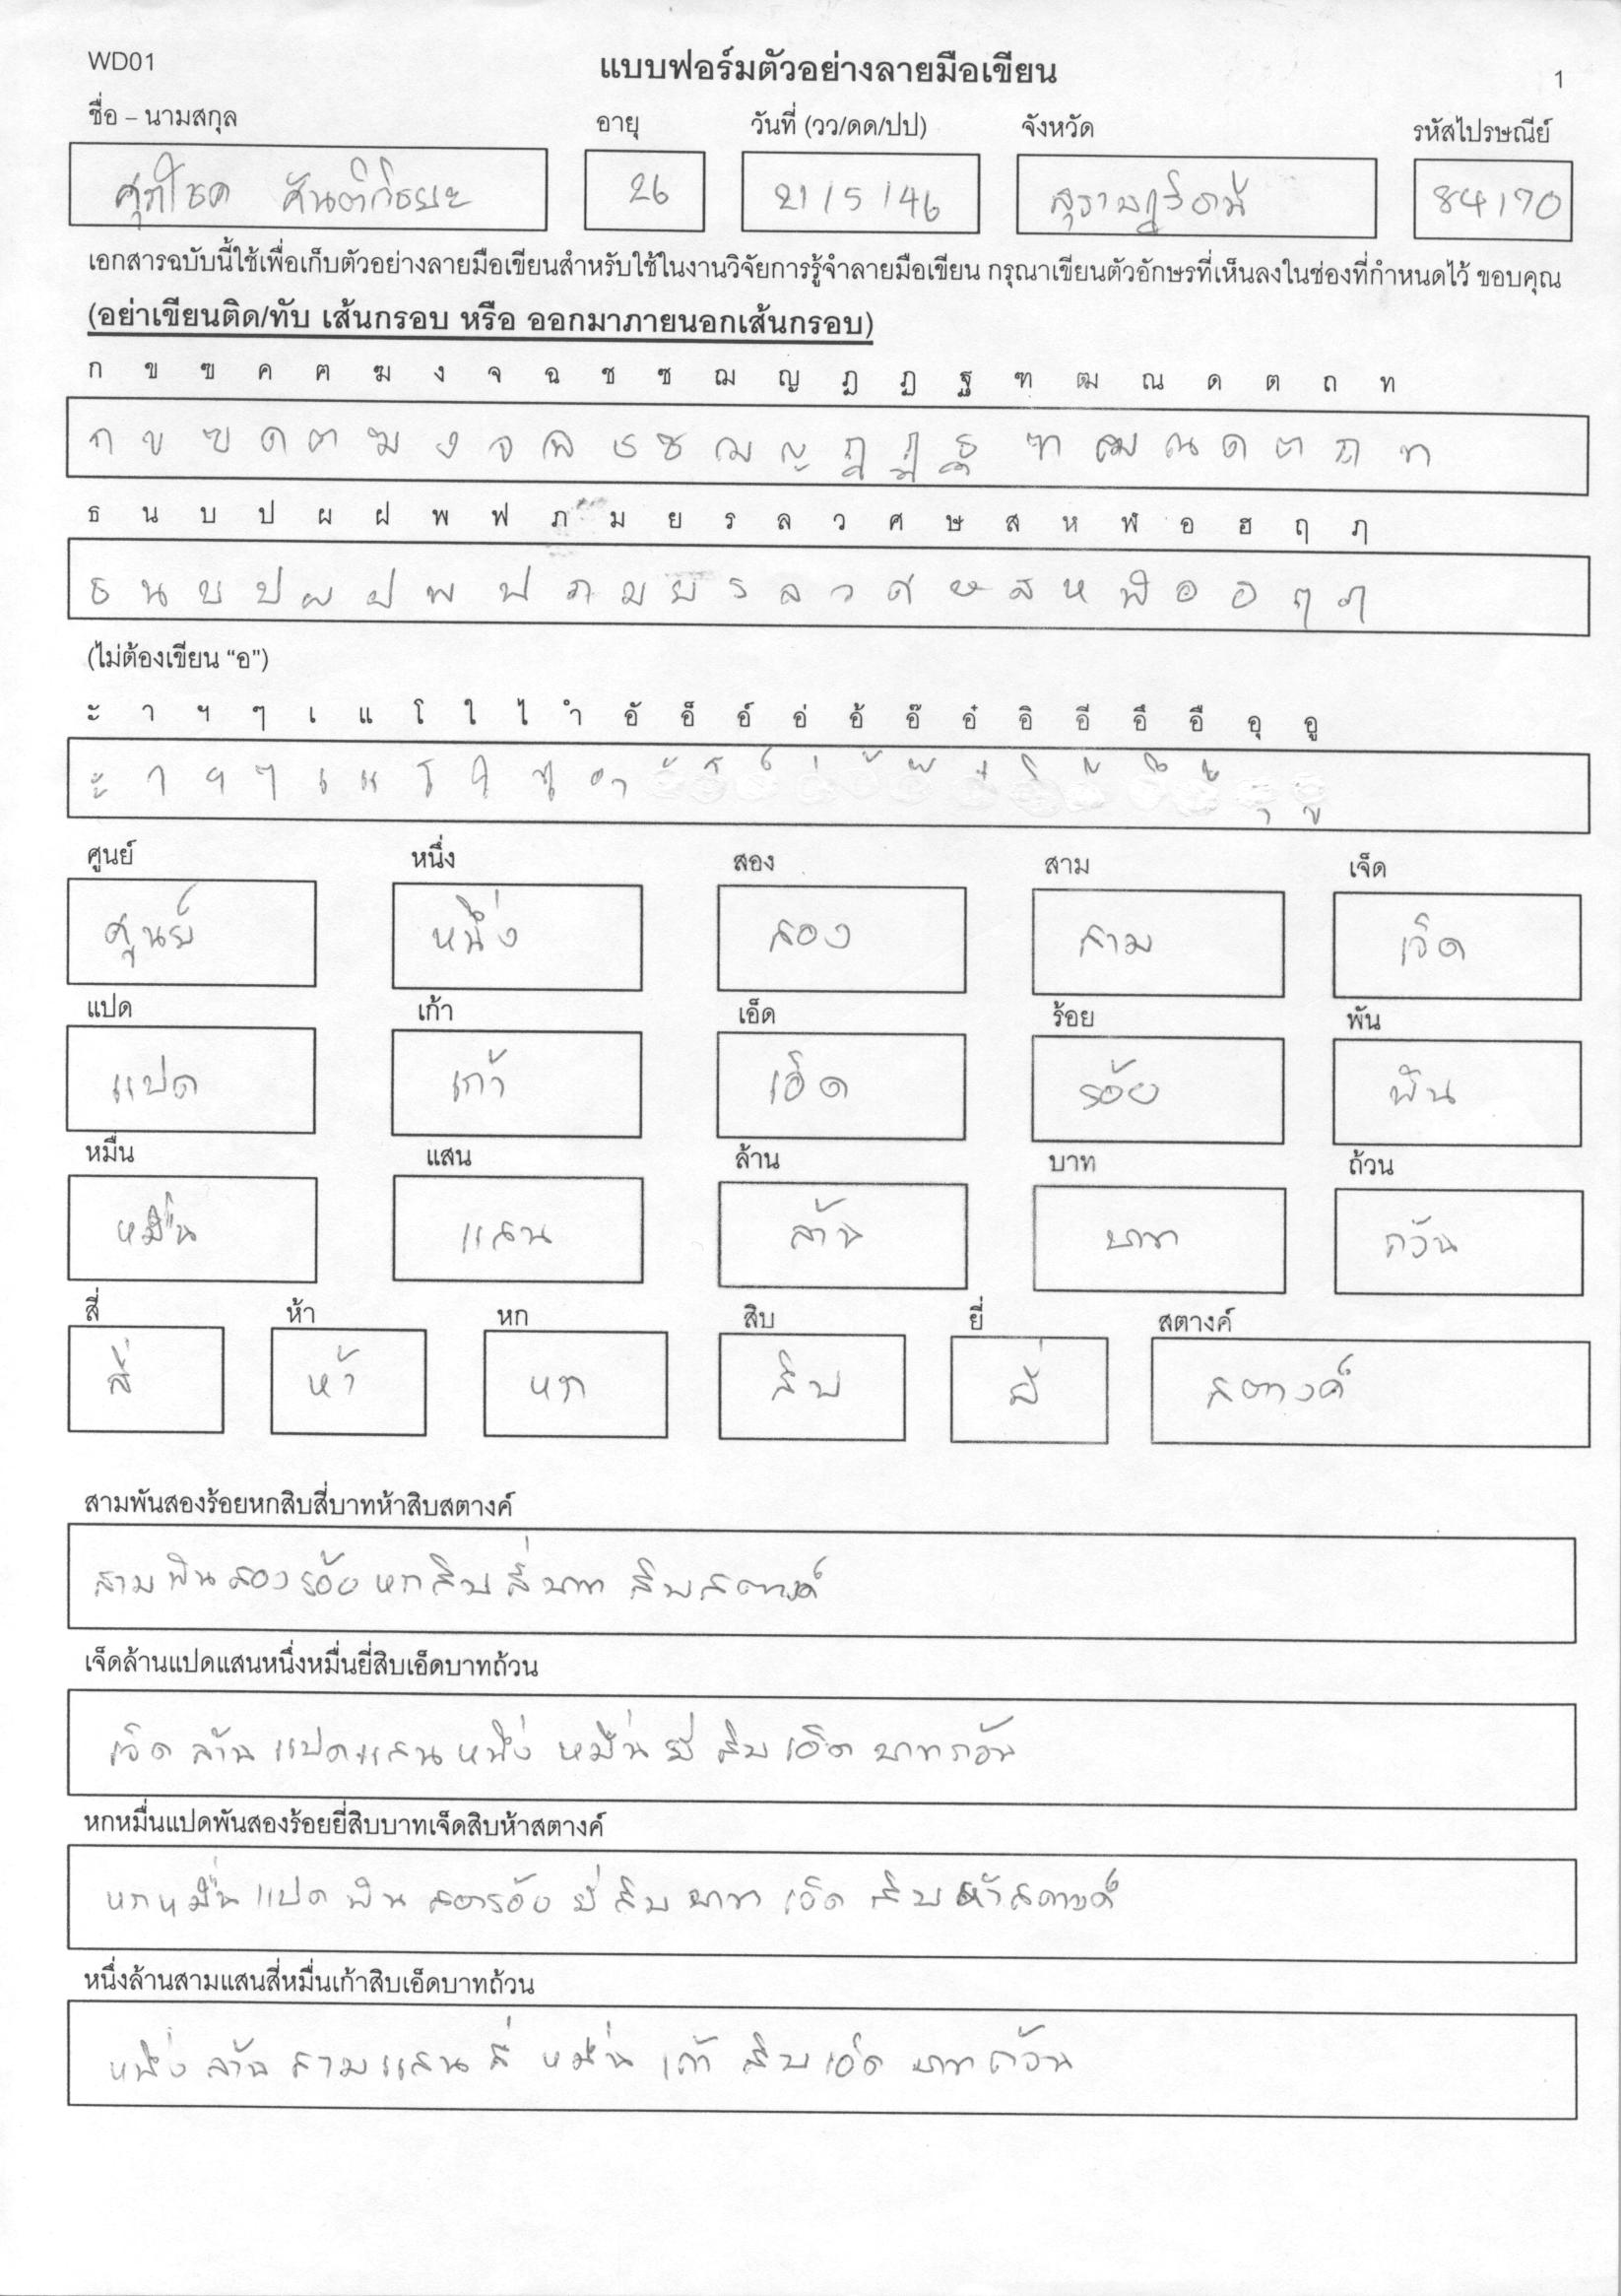 WD01 แบบฟอร์มตัวอย่างลายมือเขียน 1
ชื่อ – นามสกุล อายุ วันที่ (วว/ดด/ปป) จังหวัด รหัสไปรษณีย์
ศุภโชค 26 21/5/46 สุราษฎร์ธานี 84170
เอกสารฉบับนี้ใช้เพื่อเก็บตัวอย่างลายมือเขียนสำหรับใช้ในงานวิจัยการรู้จำลายมือเขียน กรุณาเขียนตัวอักษรที่เห็นลงในช่องที่กำหนดไว้ ขอบคุณ
(อย่าเขียนติด/ทับ เส้นกรอบ หรือ ออกมาภายนอกเส้นกรอบ)
ก ข ฃ ค ฅ ฆ ง จ ฉ ช ซ ฌ ญ ฎ ฏ ฐ ฑ ฒ ณ ด ต ถ ท
ก ข ฃ ค ฅ ฆ ง จ ฉ ช ซ ฌ ญ ฎ ฏ ฐ ฑ ฒ ณ ด ต ถ ท
ธ น บ ป ผ ฝ พ ฟ ภ ม ย ร ล ว ศ ษ ส ห ฬ อ ฮ ฤ ฦ
ธ น บ ป ผ ฝ พ ฟ ภ ม ย ร ล ว ศ ษ ส ห ฬ อ ฮ ฤ ฦ
(ไม่ต้องเขียน “อ”)
ะ า ฯ ๆ เ แ โ ใ ไ ำ อั อ็ อ์ อ่ อ้ อ๊ อ๋ อิ อี อึ อื อุ อู
ะ า ฯ ๆ เ แ โ ใ ไ ำ ั ็ ์ ่ ้ ๊ ๋ ิ ี ึ ื ุ ู
ศูนย์ หนึ่ง สอง สาม เจ็ด
ศูนย์ หนึ่ง สอง สาม เจ็ด
แปด เก้า เอ็ด ร้อย พัน
แปด เก้า เอ็ด ร้อย พัน
หมื่น แสน ล้าน บาท ถ้วน
หมื่น แสน ล้าน บาท ถ้วน
สี่ ห้า หก สิบ ยี่ สตางค์
สี่ ห้า หก สิบ ยี่ สตางค์
สามพันสองร้อยหกสิบสี่บาทห้าสิบสตางค์
สามพันสองร้อยหกสิบสี่บาท สิบสตางค์
เจ็ดล้านแปดแสนหนึ่งหมื่นยี่สิบเอ็ดบาทถ้วน
เจ็ด ล้าน แปดแสน หนึ่ง หมื่น ยี่ สิบ เอ็ด บาทถ้วน
หกหมื่นแปดพันสองร้อยยี่สิบบาทเจ็ดสิบห้าสตางค์
หกหมื่น แปด พัน สองร้อย ยี่ สิบ บาท เจ็ด สิบ ห้าสตางค์
หนึ่งล้านสามแสนสี่หมื่นเก้าสิบเอ็ดบาทถ้วน
หนึ่ง ล้าน สามแสน สี่ หมื่น เก้า สิบ เอ็ด บาท ถ้วน